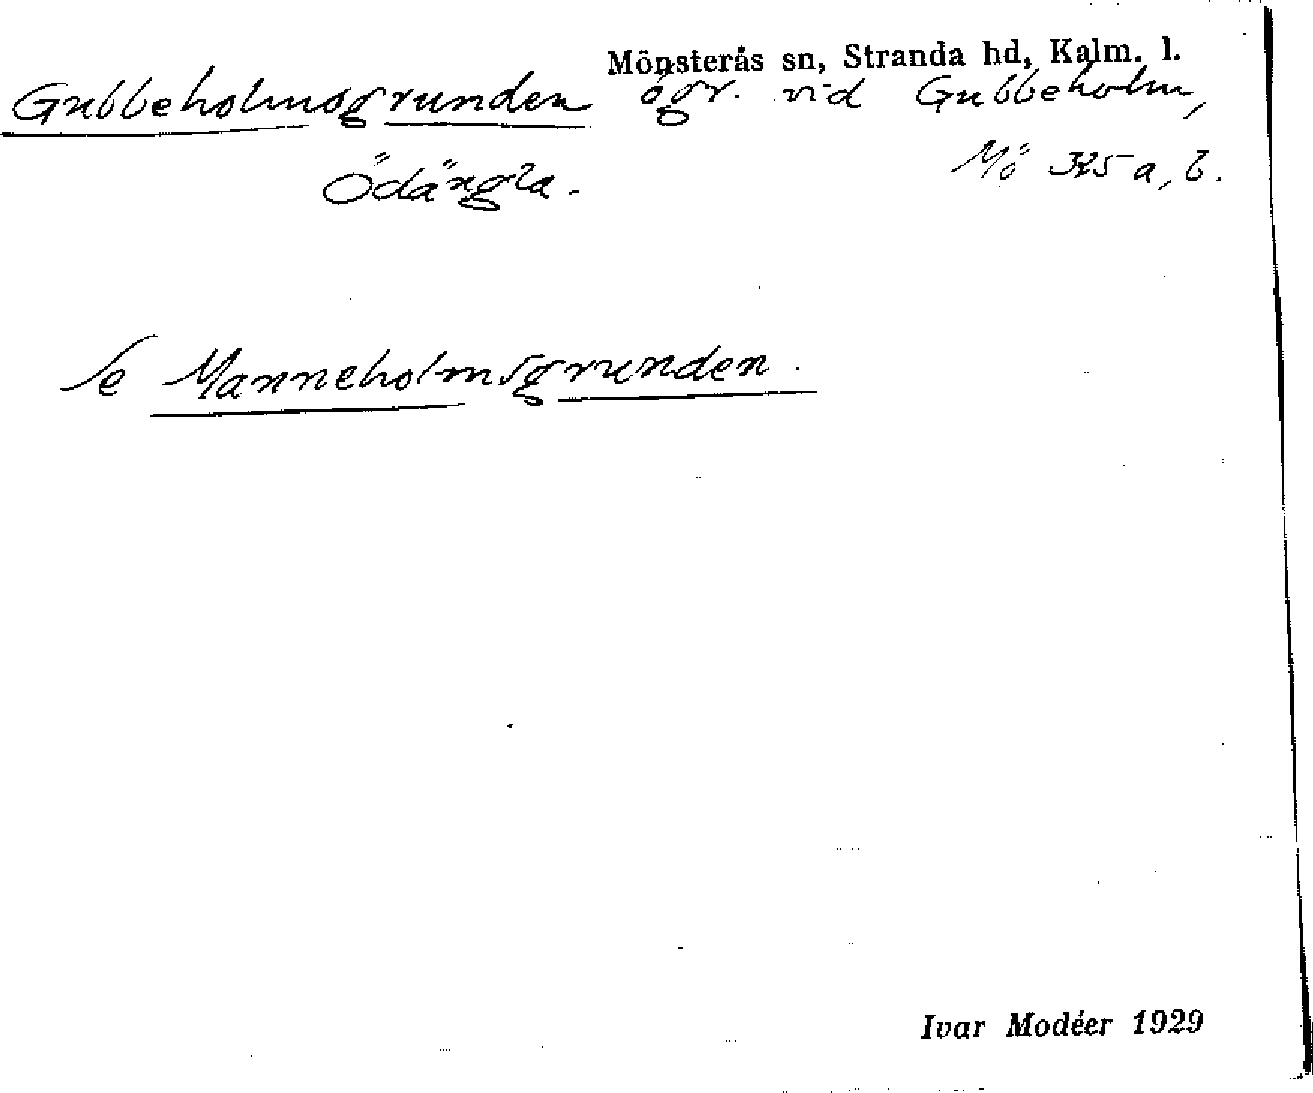 Mönsterås sn, Stranda hd, Kalm. l.
Gubbeholmsgrunden ögr. vid Gubbeholm,
Ödängla. Mö K5 a, b.
Se Manneholmsgrunden.
Ivar Modéer 1929